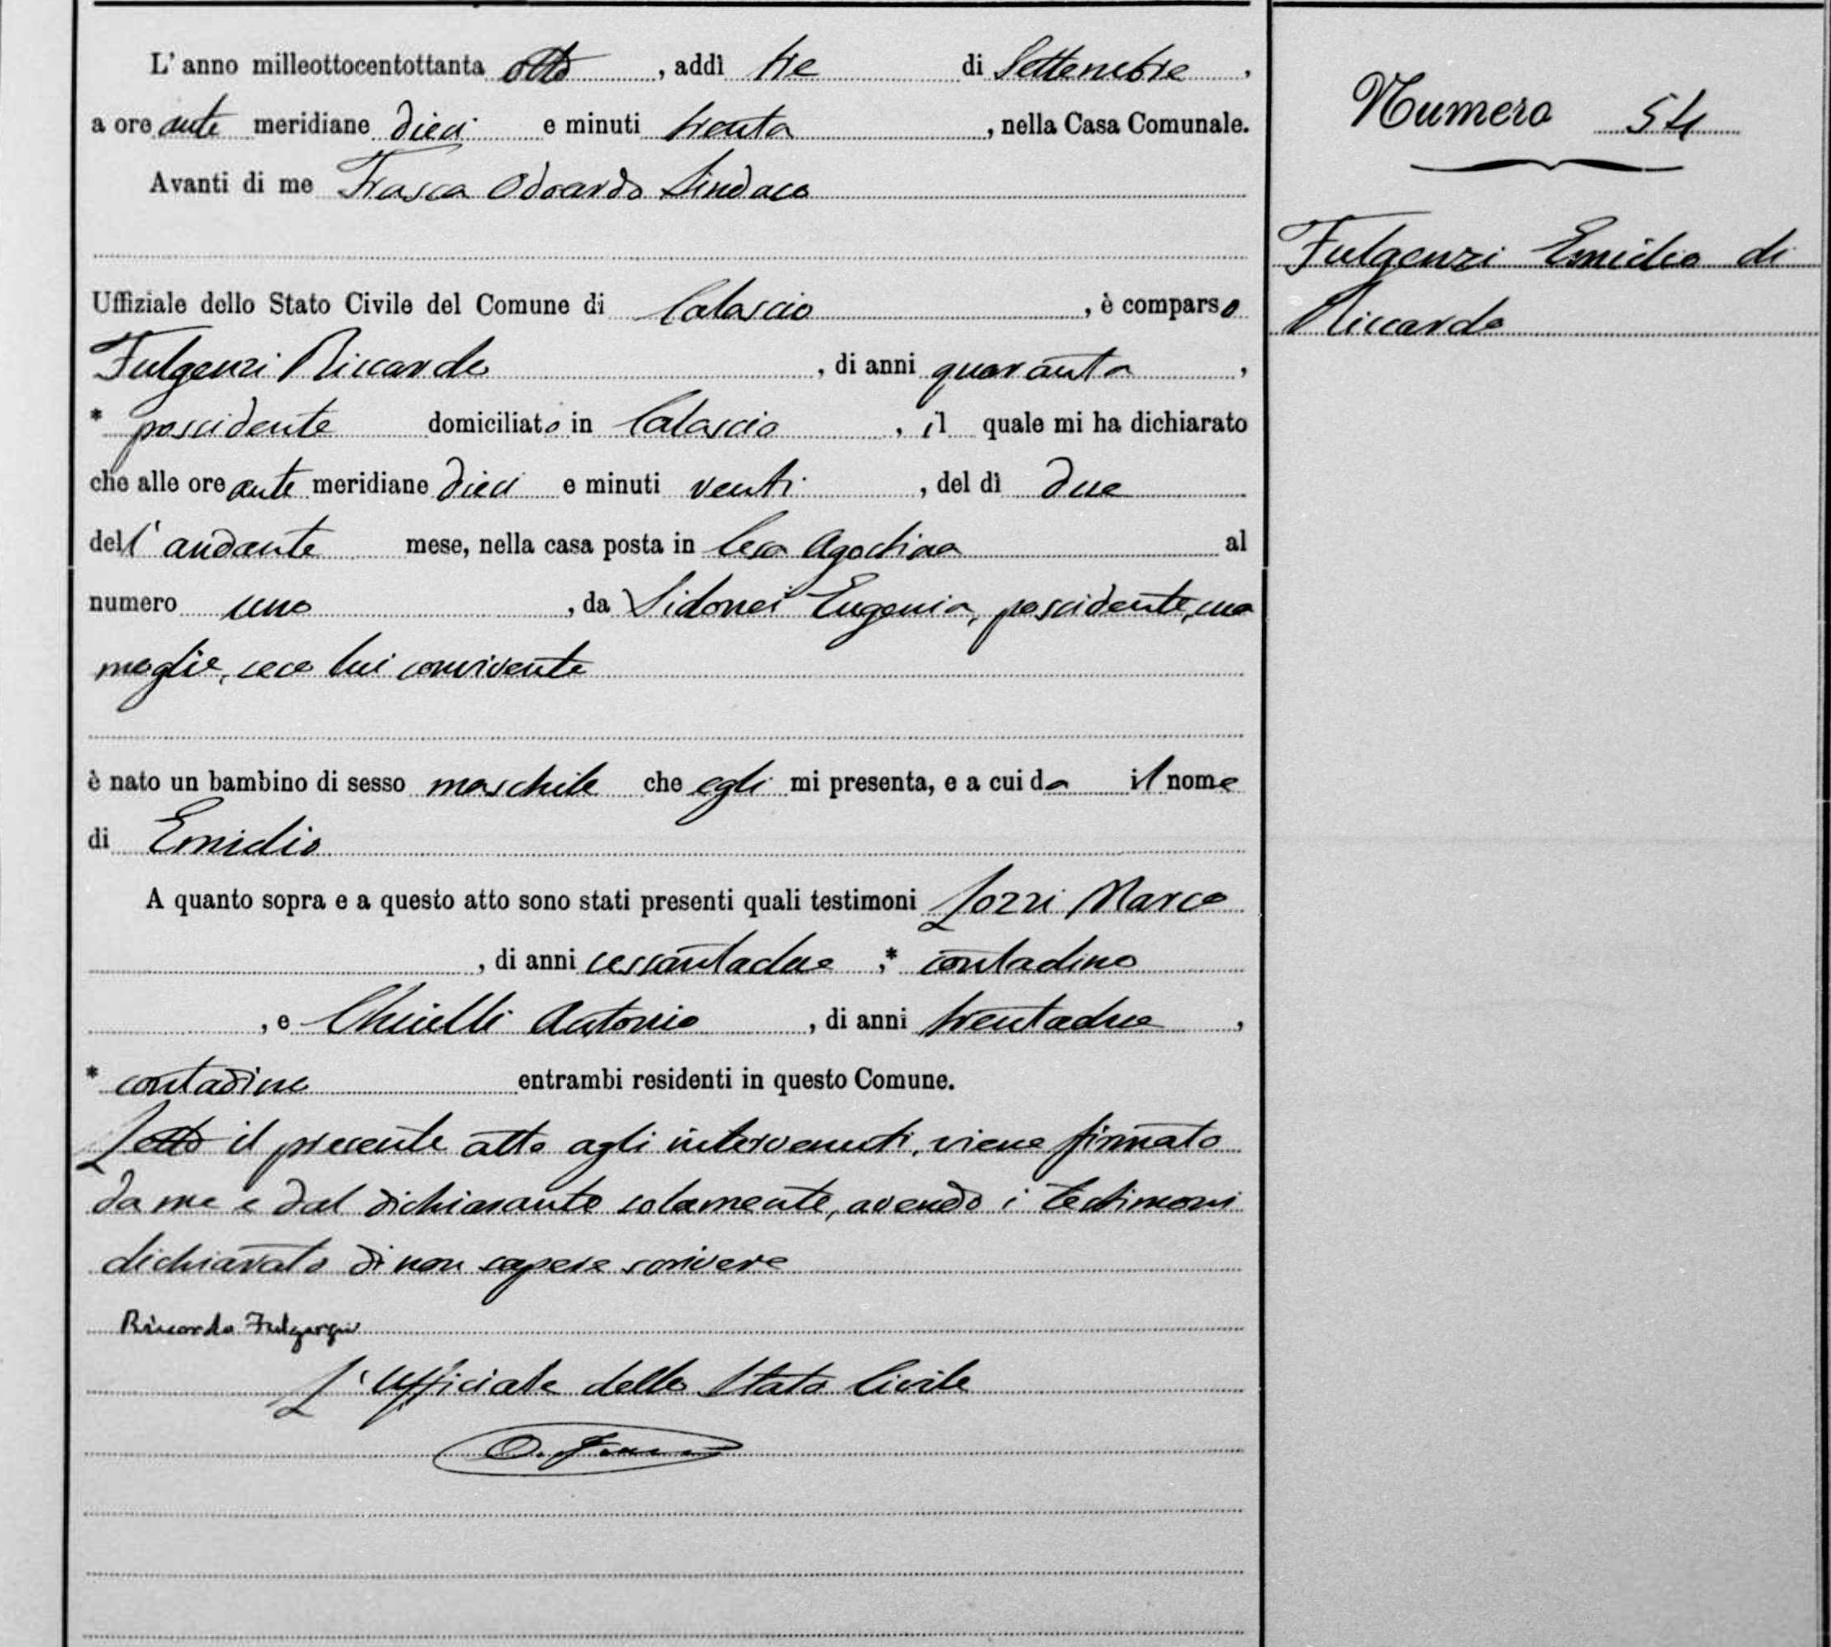 L'anno milleottocentottanta otto, addì tre di Settembre,
a ore ante meridiane dieci e minuti trenta, nella Casa Comunale.
Avanti di me Frasca Odoardo Sindaco
Uffiziale dello Stato Civile del Comune di Calascio, è comparso
Fulgenzi Riccardo, di anni quaranta,
* possidente domiciliato in Calascio, il quale mi ha dichiarato
che alle ore ante meridiane dieci e minuti venti, del dì due
dell'andante mese, nella casa posta in al
numero uno, da Sidonei Eugenia, possidente, sua
moglie, seco lui convivente
è nato un bambino di sesso maschile che egli mi presenta, e a cui da il nome
di Emidio
A quanto sopra e a questo atto sono stati presenti quali testimoni Lozzi Marco
, di anni sessantadue, * contadino
, e Chiulli Antonio, di anni trentadue,
* contadino entrambi residenti in questo Comune.
Letto il presente atto agli intervenuti, viene firmato
da me e dal dichiarante solamente, avendo i testimoni
dichiarato di non sapere scrivere
Riccardo Fulgenzi
L'Ufficiale dello Stato Civile
O. Frasca
Numero 54
Fulgenzi Emidio di
Riccardo